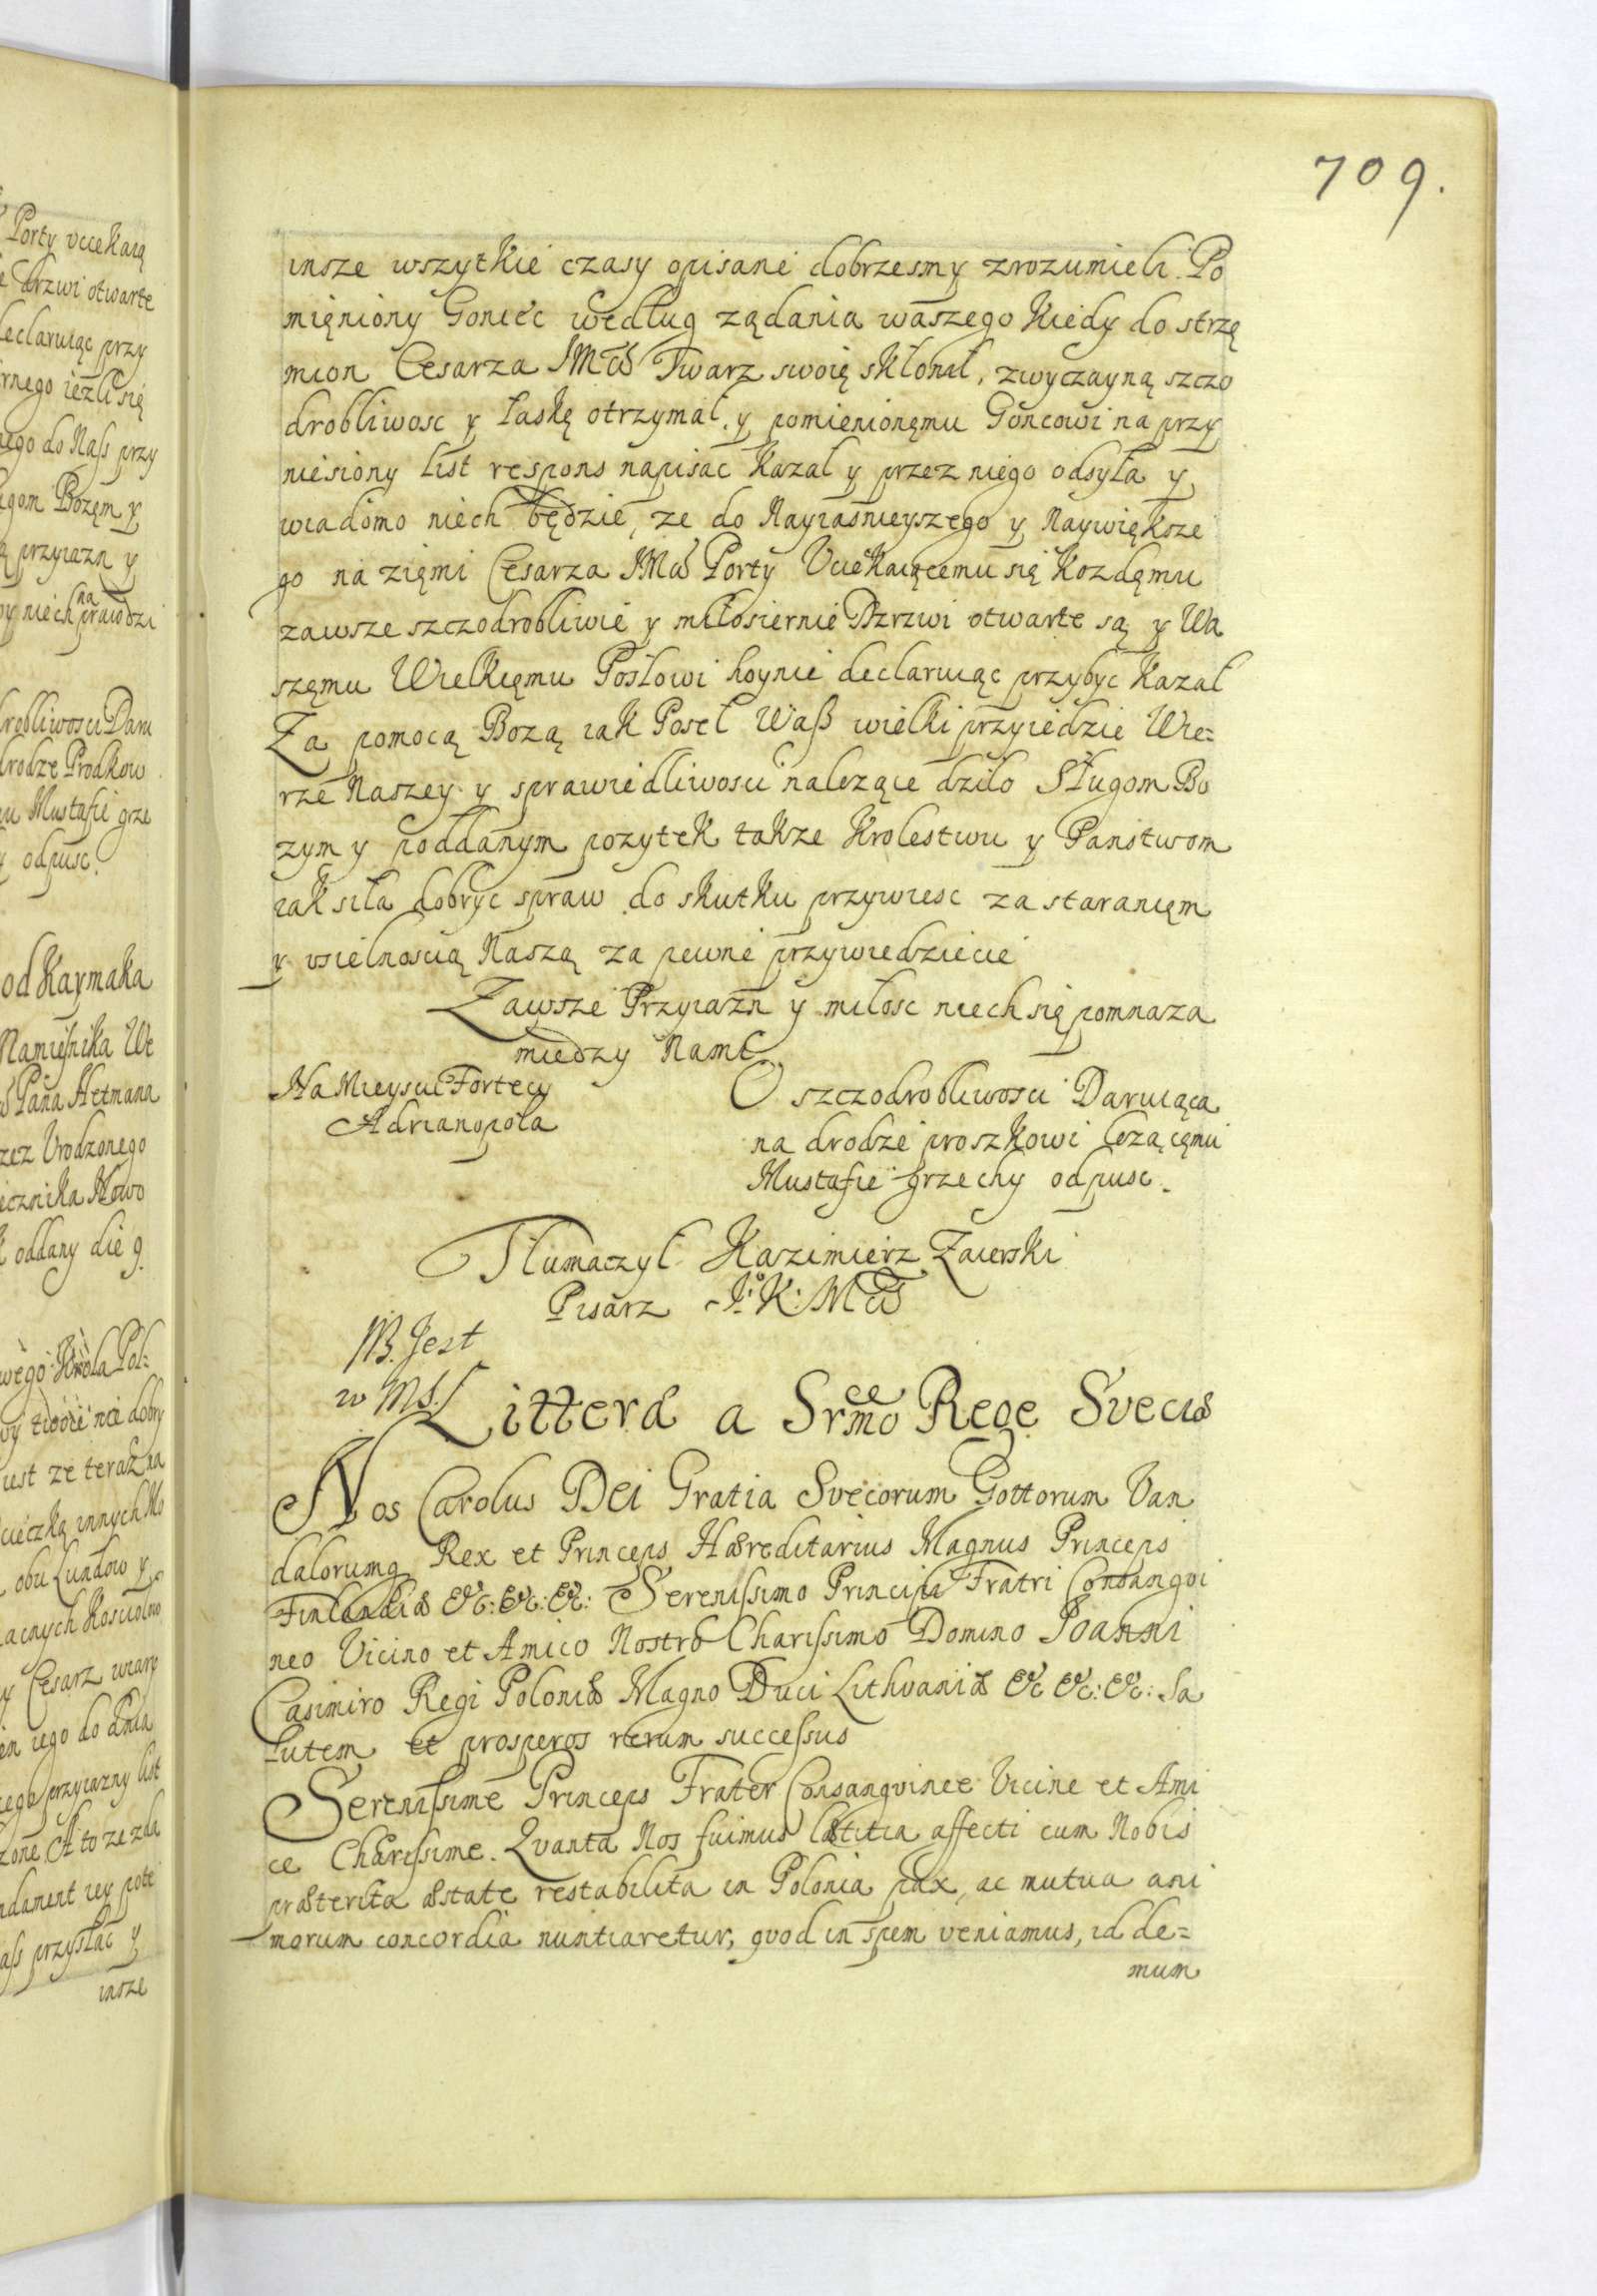 709.
insze wszytkie czasy opisane dobrzesmy zrozumieli. Po
mięniony Goniec według ządania waszego kiedy do strzę
mion Cesarza JMći Twarz swoię skłonił, zwyczayną szczo
drobliwosc y łaskę otrzymał. y pomienionęmu Goncowi na przy
niesiony list respons napisac kazał y przez niego odsyła y
wiadomo niech będzie, ze do Nayiasnieyszego y Naywiększe
go na zięmi Cesarza JMći Porty Uciekaiącemu się kozdęmu
zawsze szczodrobliwie y miłosiernie Dzrzwi otwarte są y Wa
szęmu Wielkięmu Posłowi hoynie declaruiąc przybyc kazał
Za pomocą Bozą iak Poseł Waß wielki przyiedzie Wie=
rze Naszey y sprawiedliwosci nalezące dziło Sługom Bo
zym y poddanym pozytek takze Krolestwu y Panstwom
iak siła dobryc spraw do skutku przywiesc za staranięm
y usielnoscią Naszą za pewne przywiedziecie
Zawsze Przyiazn y miłosc niech się pomnaza
miedzy Nami
Na Mieyscu Fortecy
Adrianopola
O szczodrobliwosci Daruiąca
na drodze proszkowi lezącęmu
Mustafie grzechy odpusc.
Tłumaczył Kazimierz Zaierski
Pisarz J: K: Mći
NB. Jest
w MS.
Litteræ a Srmo Rege Sveciæ
Nos Carolus Dei Gratia Svecorum Gottorum Van
dalorumq Rex et Princeps Hæreditarius Magnus Princeps
Finlandiæ &c: &c: &c: Serenissimo Principi Fratri Consangvi
neo Vicino et Amico Nostro Charissimo Domino Joanni
Casimiro Regi Poloniæ Magno Duci Lithvaniæ &c &c: &c: Sa
lutem et prosperos rerum successus
Serenissime Princeps Frater Consangvinee Vicine et Ami
ce Charissime. Qvanta Nos fuimus lætitia affecti cum Nobis
præterita æstate restabilita in Polonia pax, ac mutua ani
morum concordia nuntiaretur, qvod in spem veniamus, id de=
mum